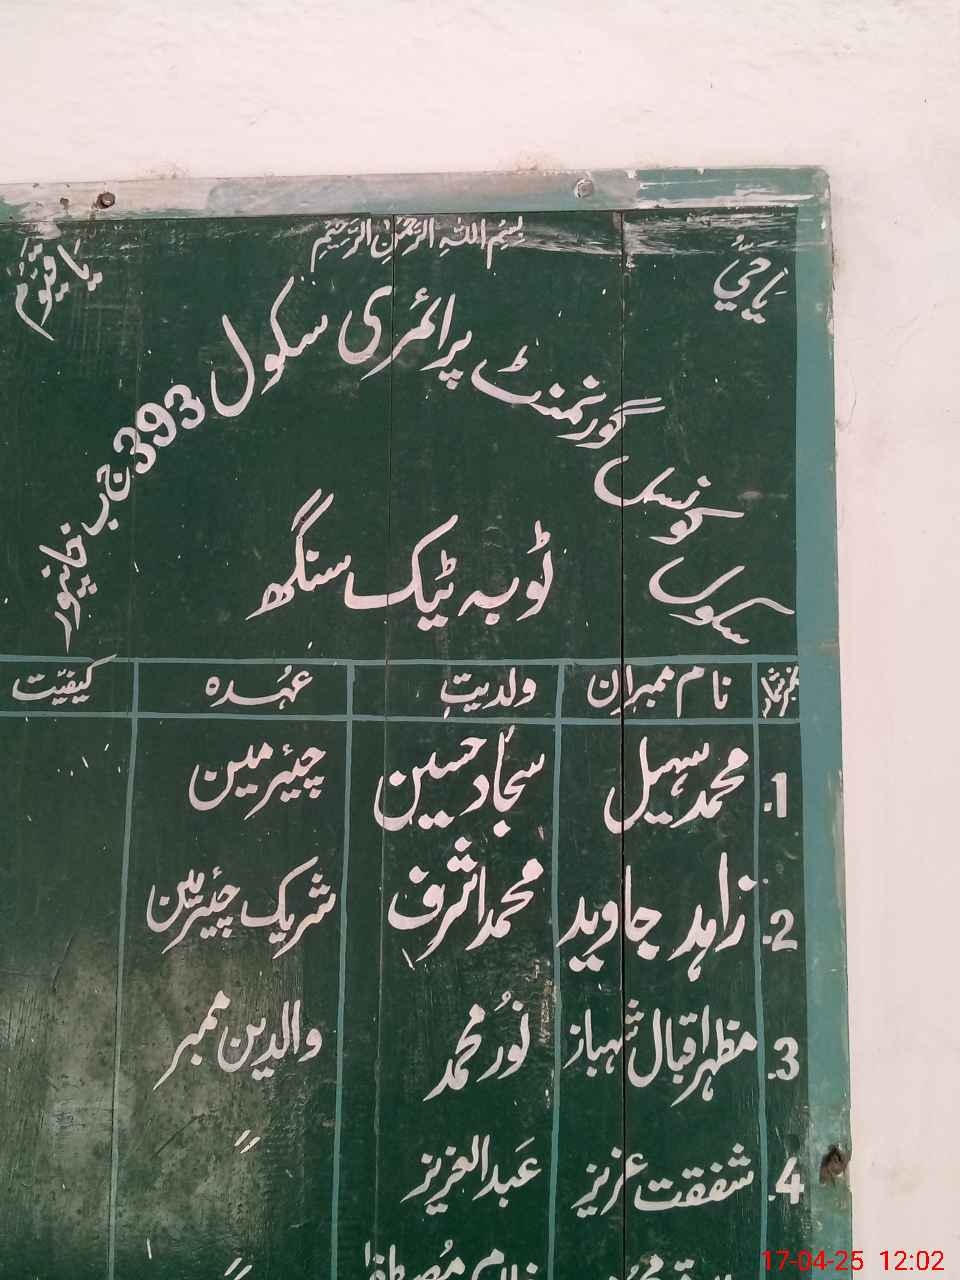 بِسْمِ اللہِ الرَّحْمٰنِ الرَّحِیْمِ
یَا حَیُّ
یَا قَیُّوْمُ
سکول کونسل گورنمنٹ پرائمری سکول 393 ج ب خانپور
ٹوبہ ٹیک سنگھ
نمبر شمار نام ممبران ولدیت عہُدہ کیفیّت
1. محمد سہیل سجاد حسین چیئرمین
2. زاہد جاوید محمد اشرف شریک چیئرمین
3. مظہر اقبال شہباز نُور محمد والدین ممبر
4. شفقت عزیز عَبدالعزیز 〃
غلام مُصطفٰی 〃
17-04-25 12:02